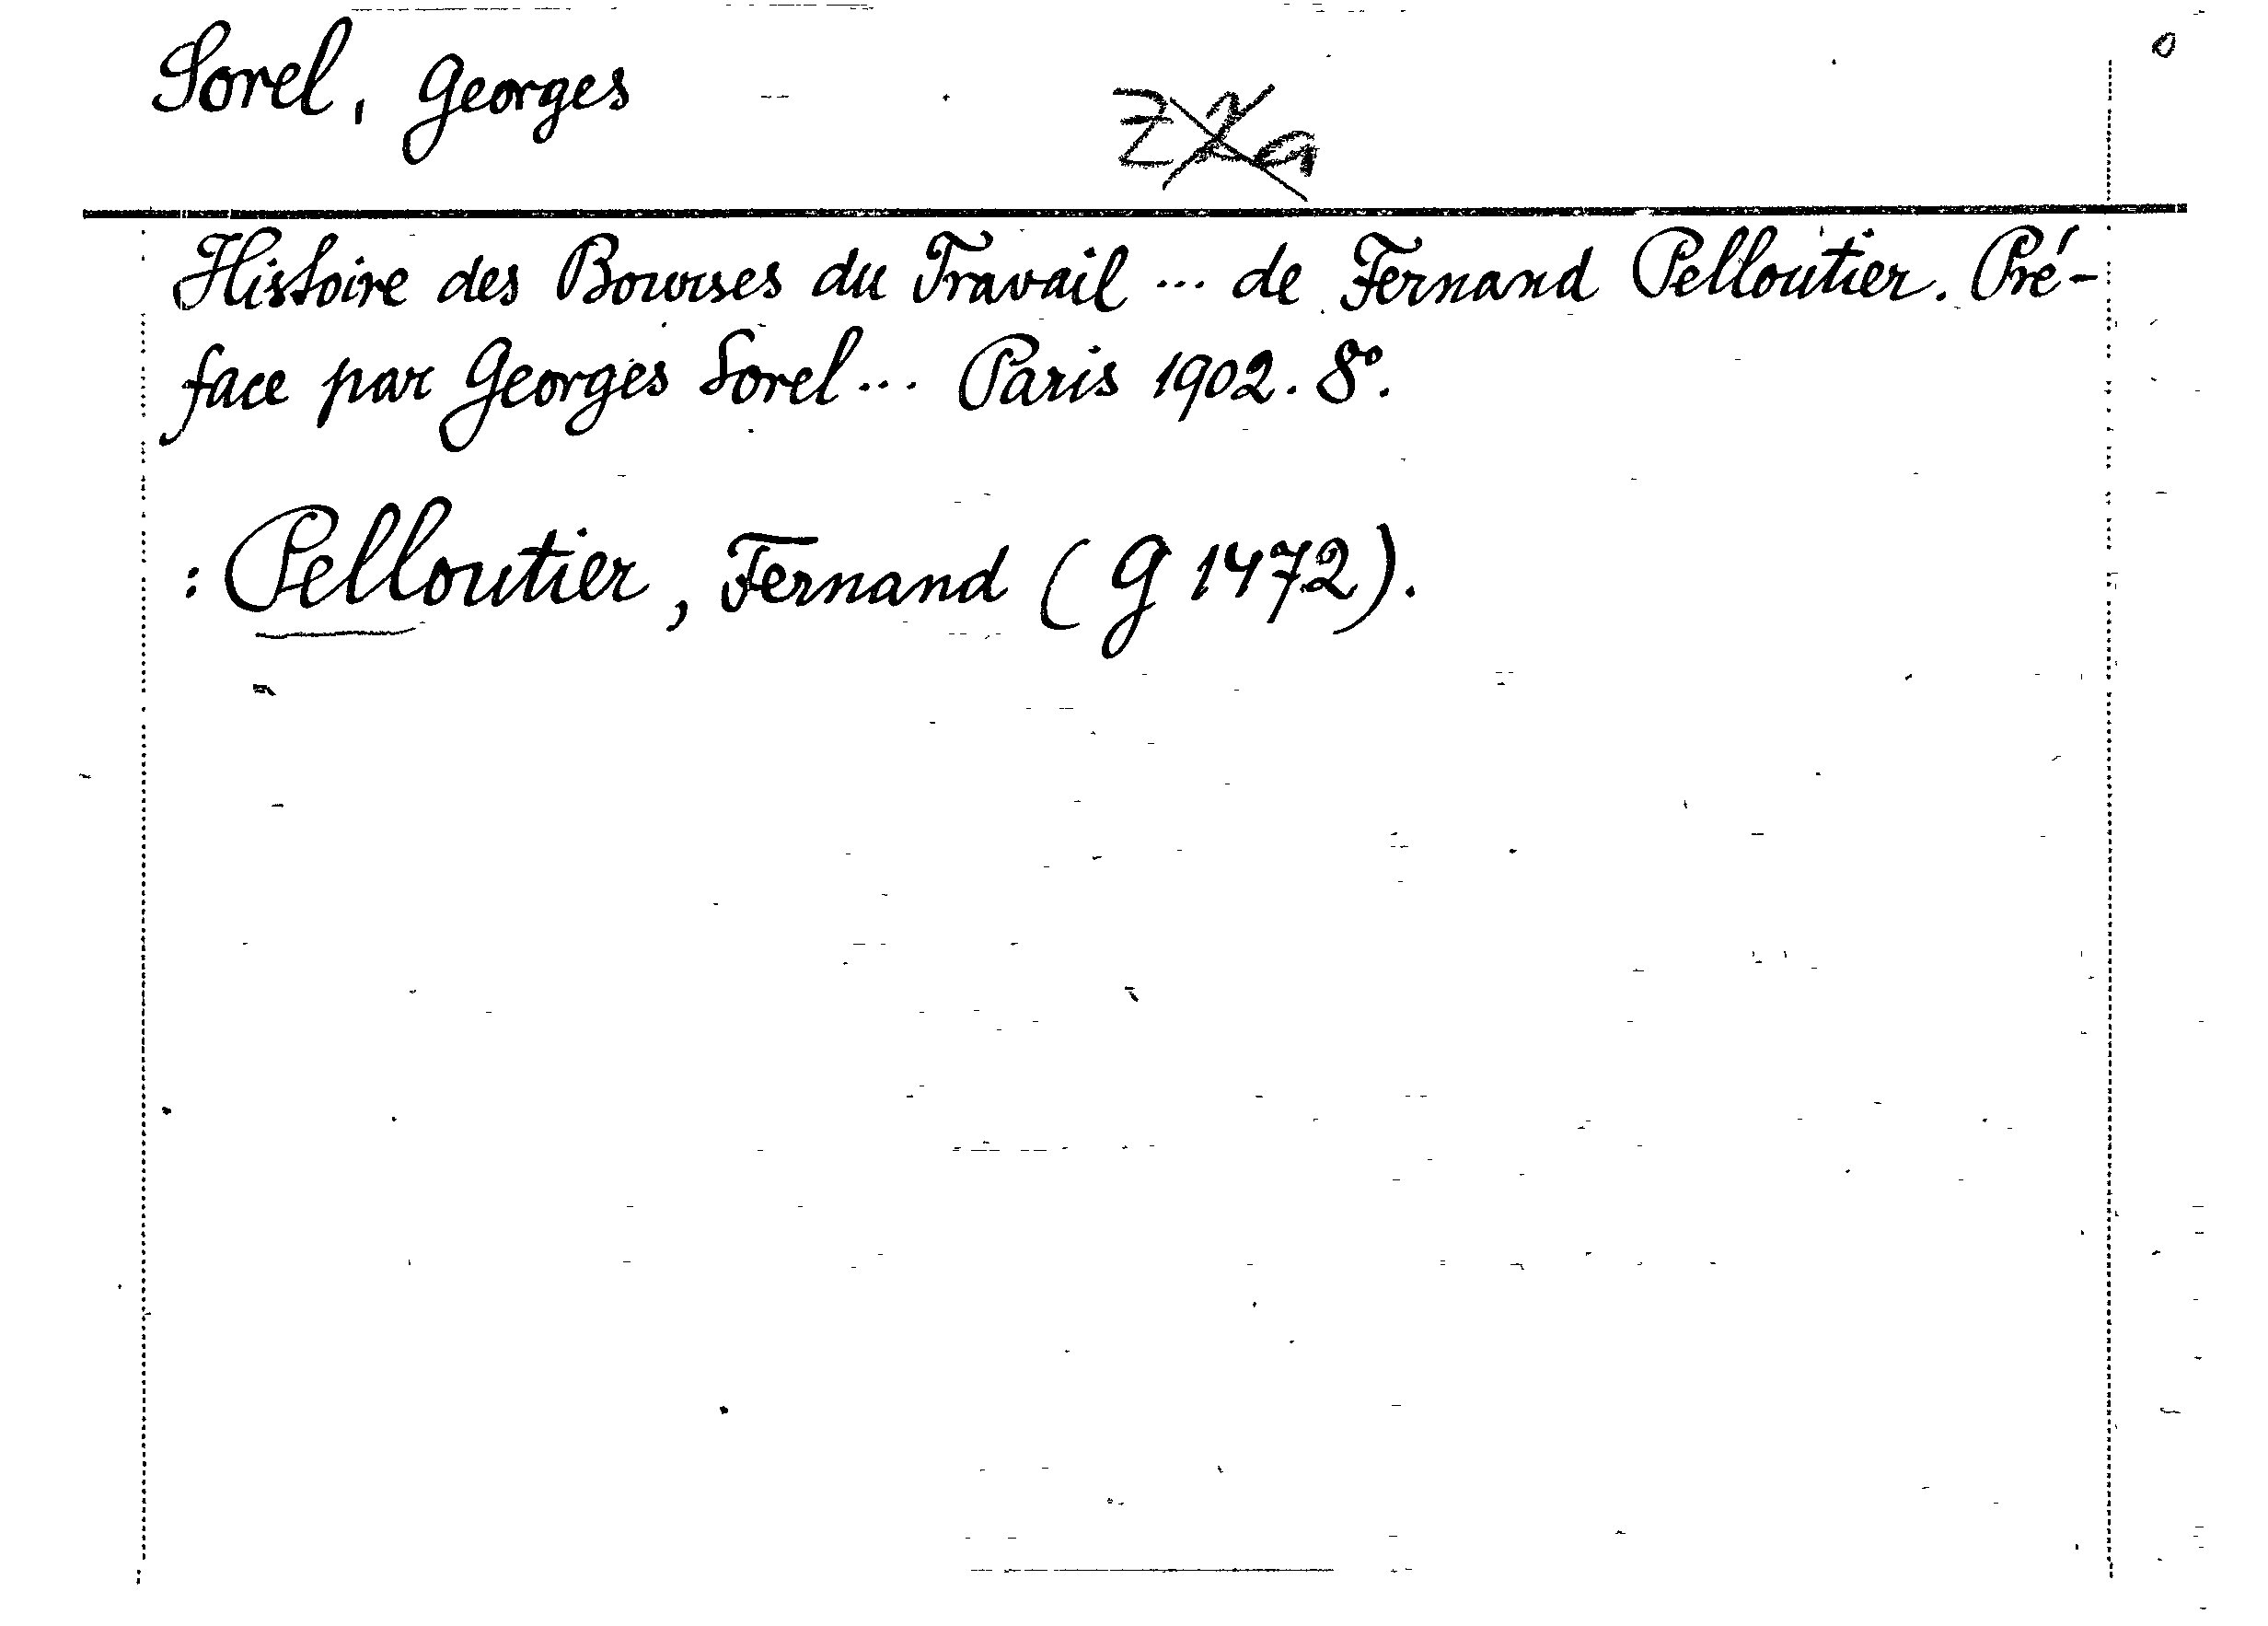 Sorel, Georges
Histoire des Bourses du Travail ... de Fernand Pelloutier. Pré-
face par Georges Sorel ... Paris 1902. 8°.
: Pelloutier, Fernand (G 1472).